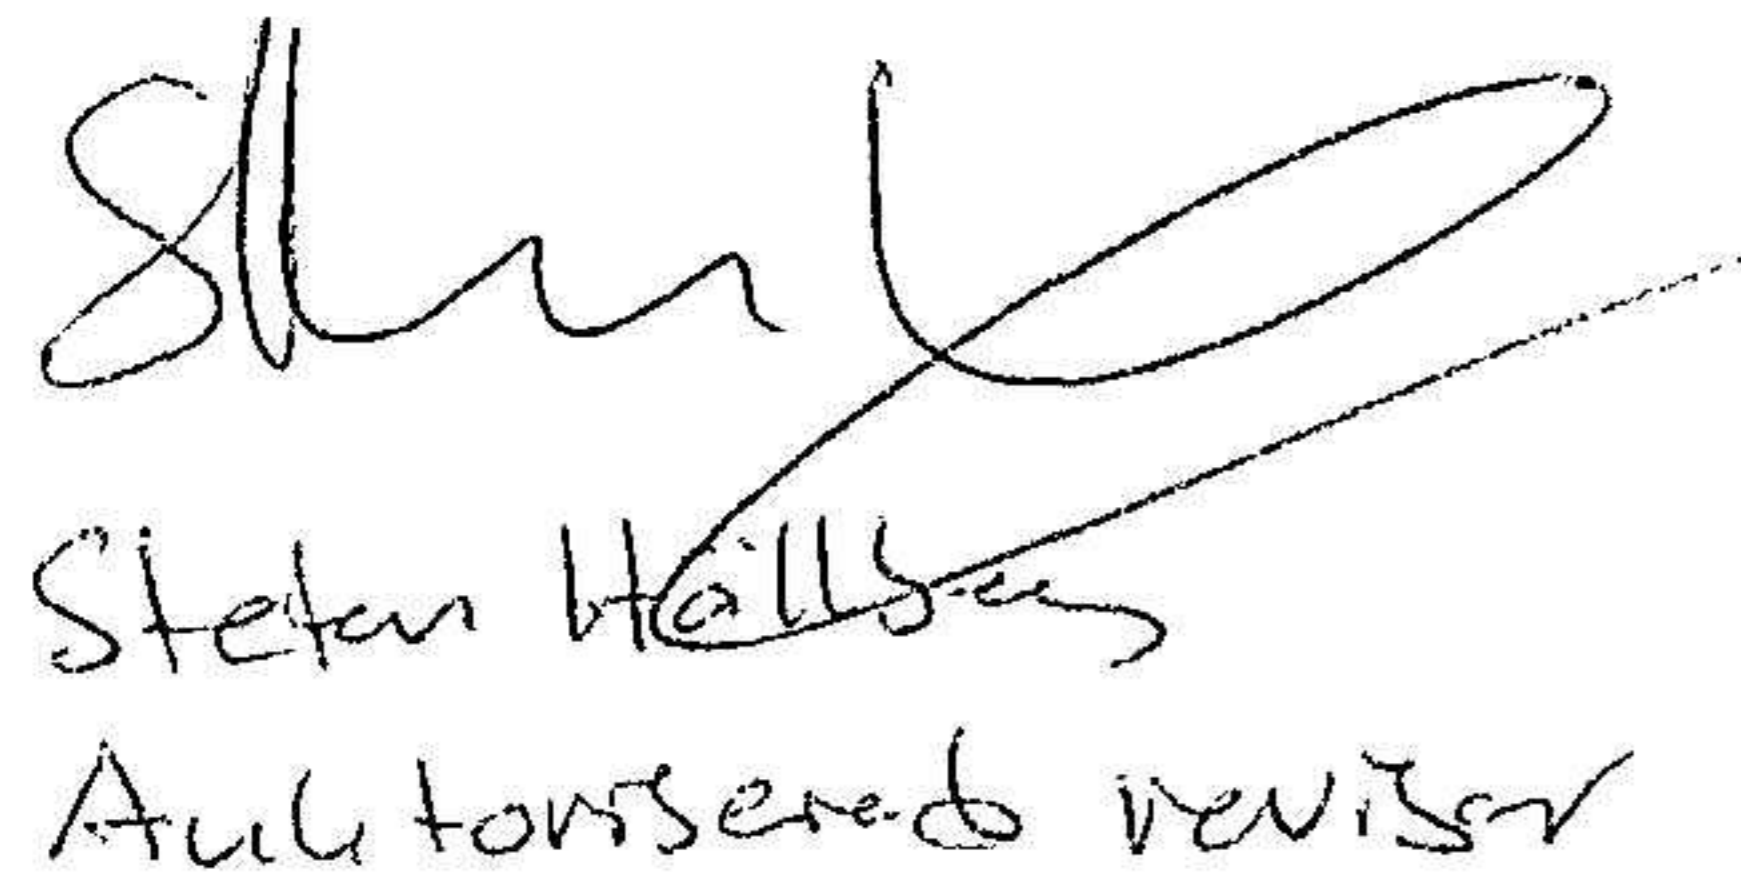 Stefan Hällberg
Auktoriserad revisor